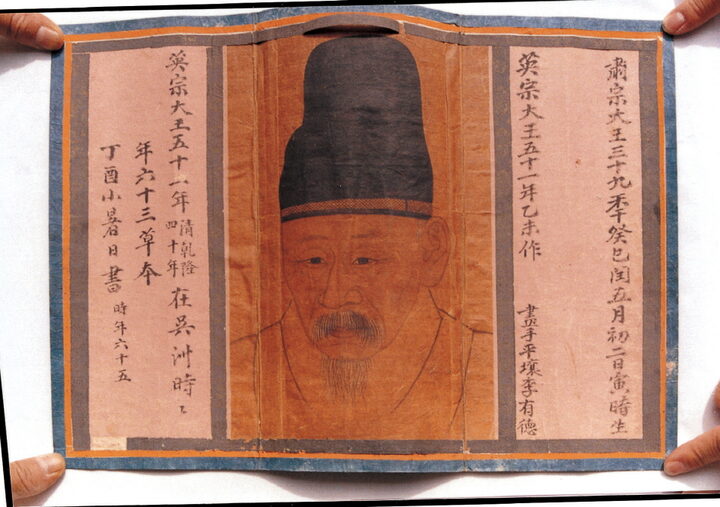 肅宗大王三十九年癸巳閏五月初二日寅時生
英宗大王五十一年乙未作
畫手平壤李有德
英宗大王五十一年清乾隆四十年在吳洲時〻
年六十三草本
丁酉小暑日書 時年六十五